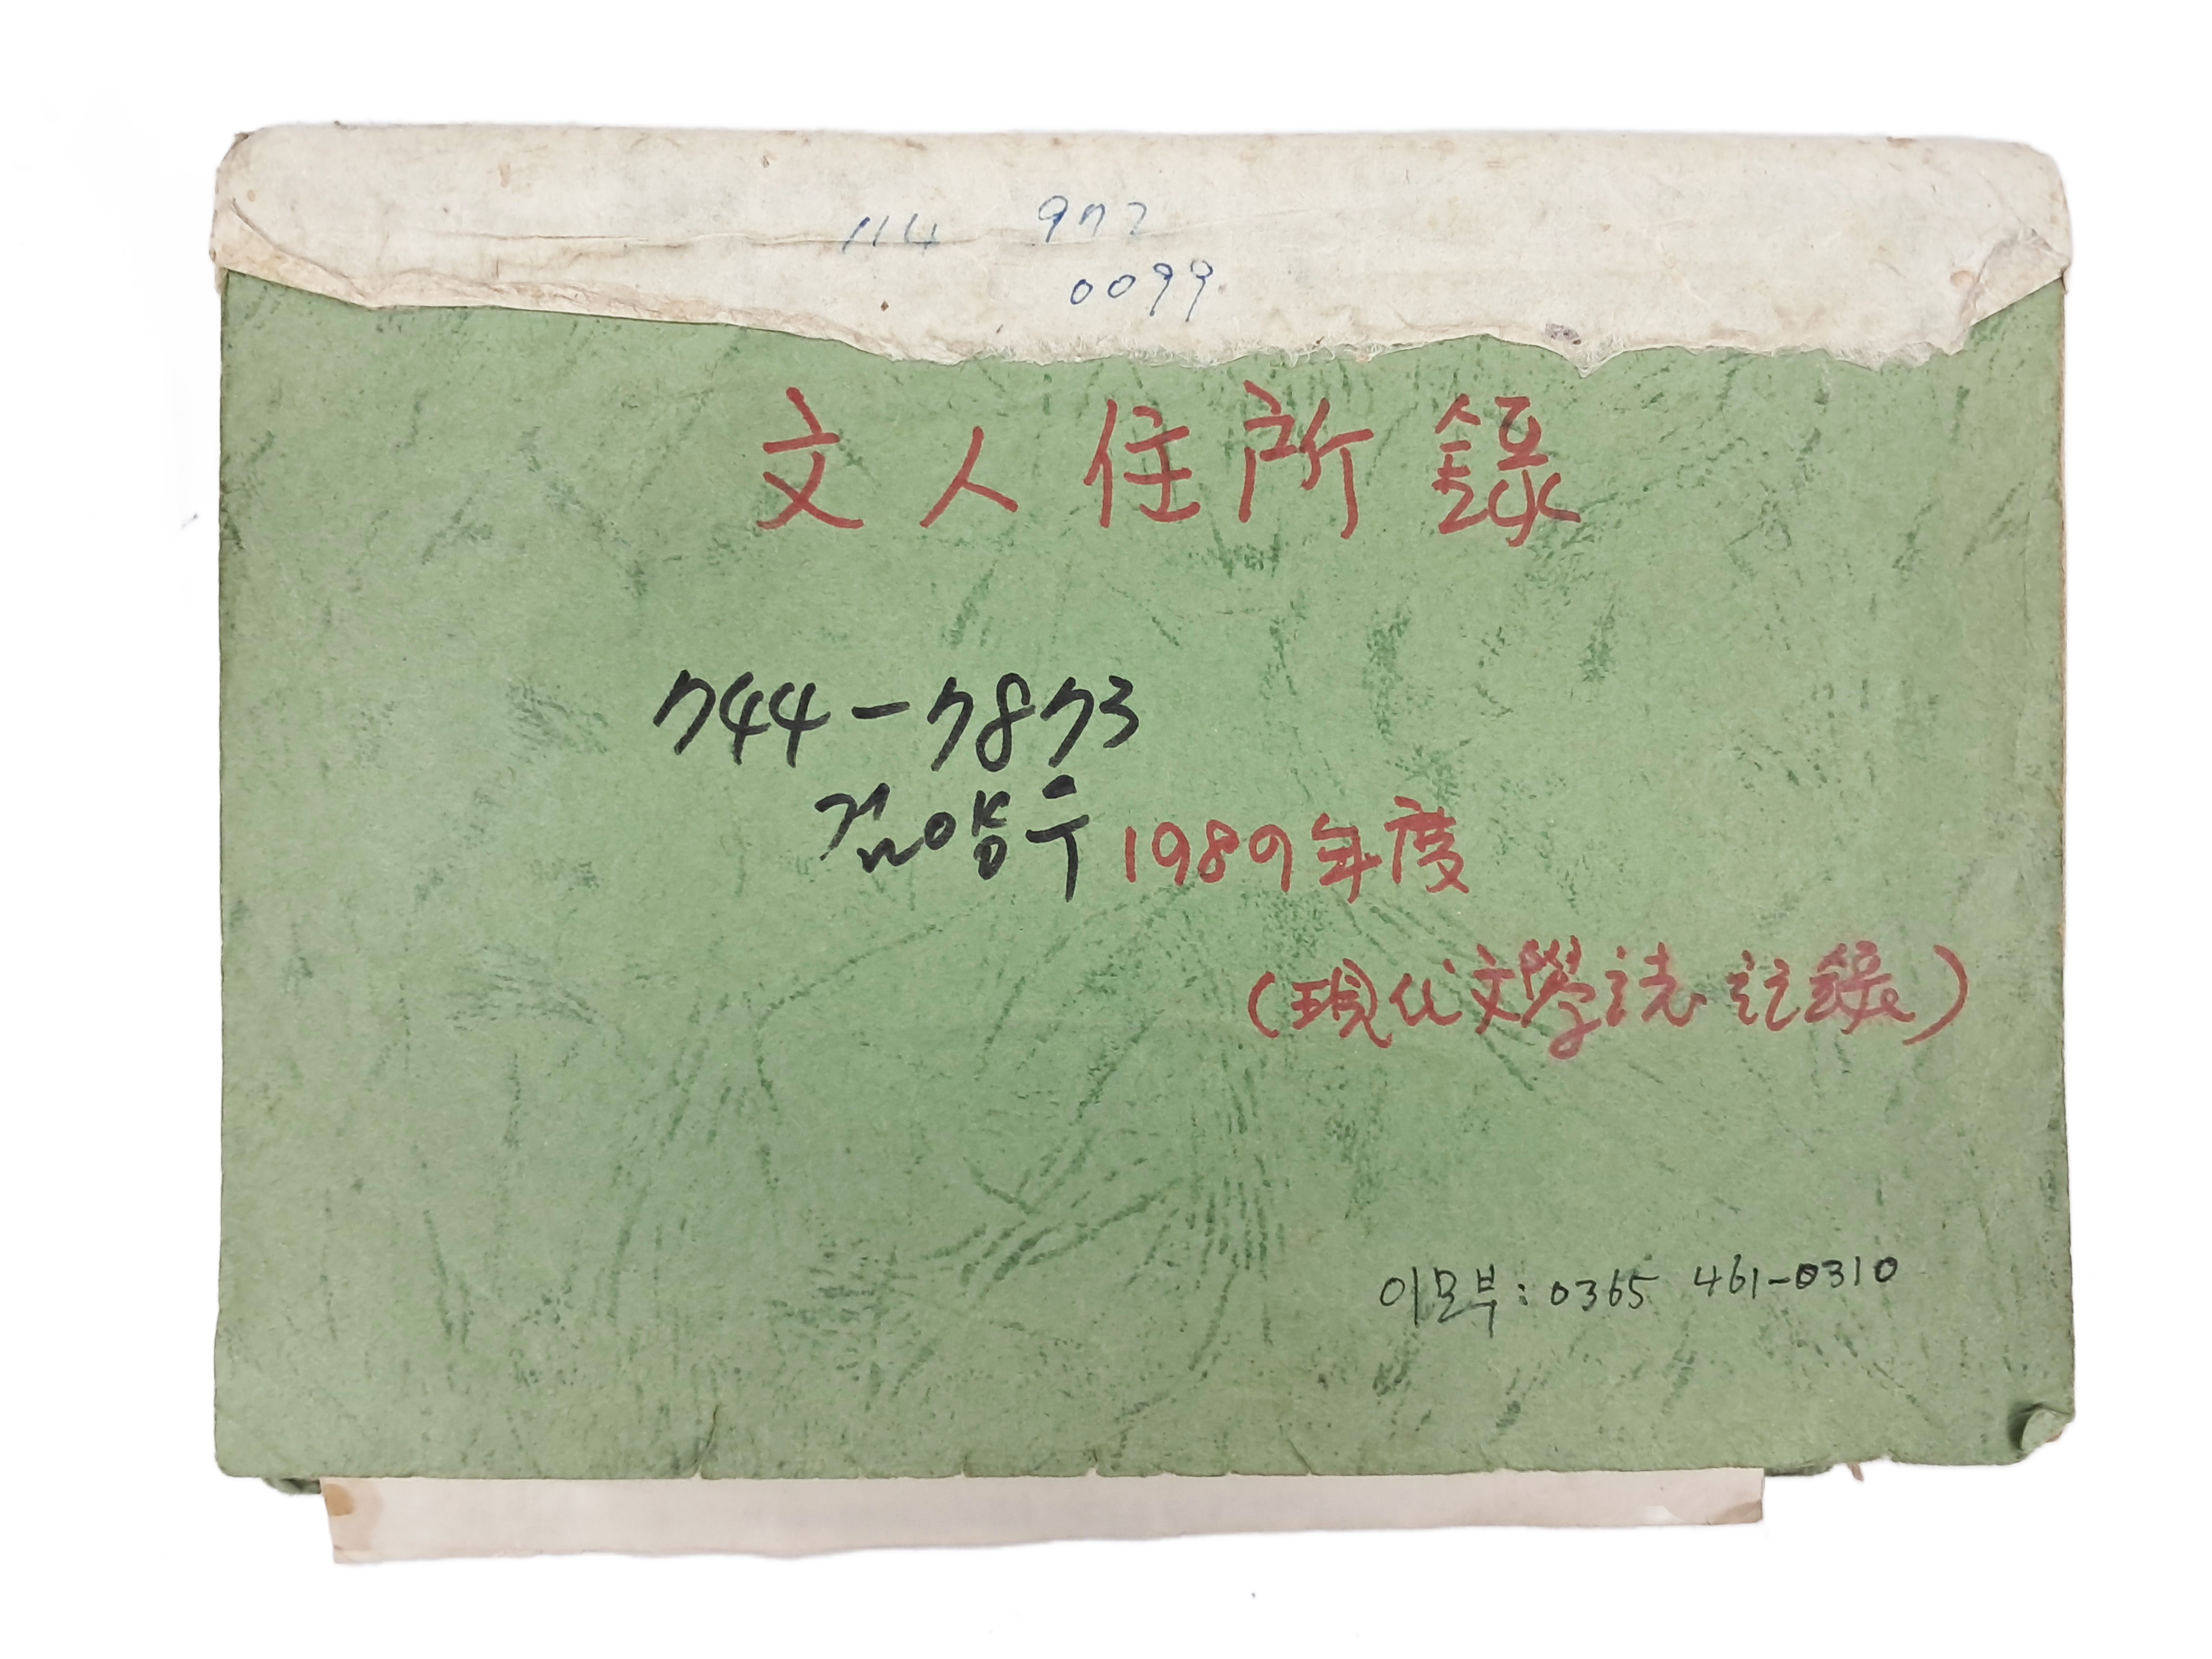 114 977
0099
文人住所錄
744-7873
김양수
1989年度
(現代文學誌 記錄)
이모부: 0365 461-0310